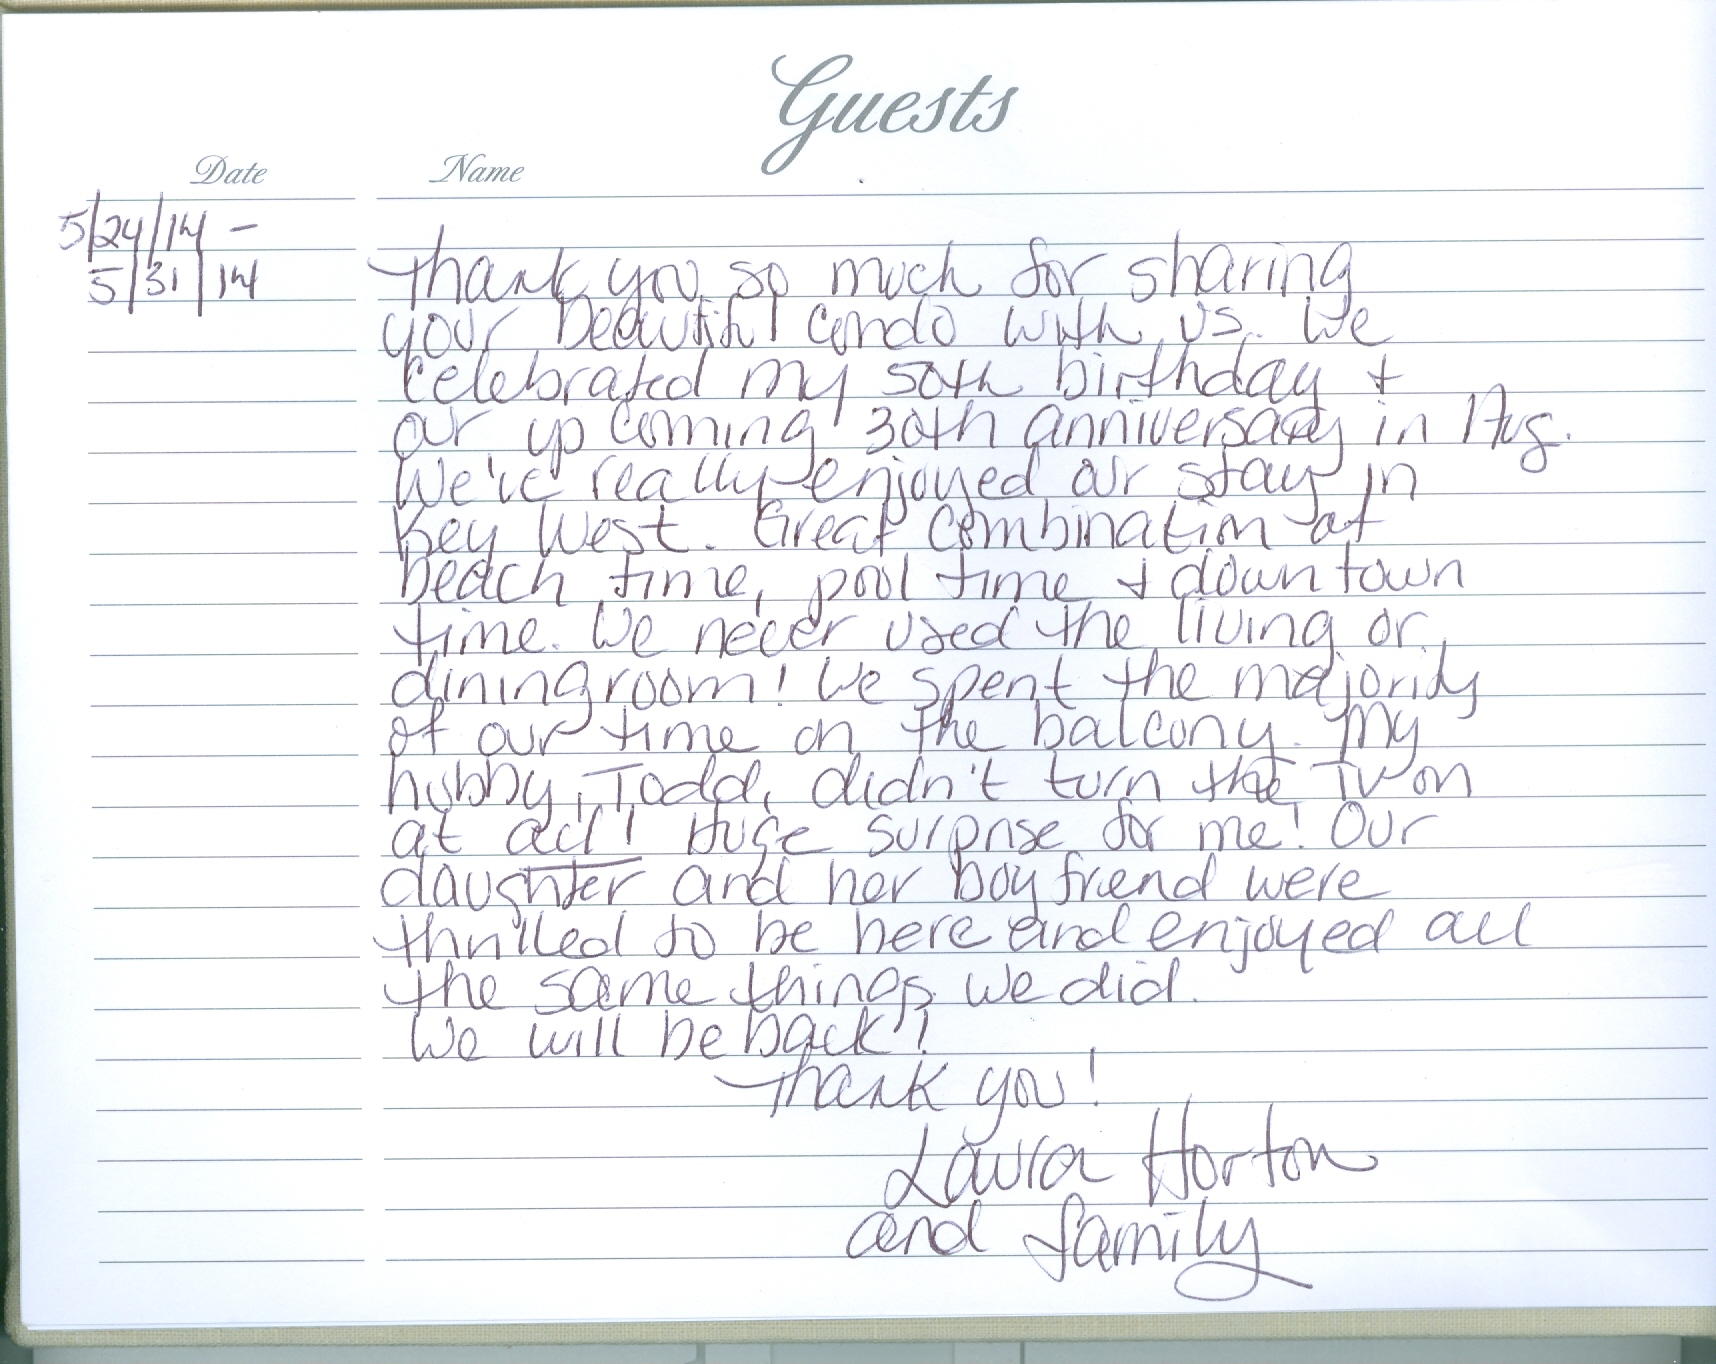 Guests
Date Name
5/24/14 -
5/31/14
Thank you so much for sharing
your beautiful condo with us. We
celebrated my 50th birthday +
our up coming 30th anniversary in Aug.
We've really enjoyed our stay in
Key West. Great combination of
beach time, pool time + down town
time. We never used the living or
dining room! We spent the majority
of our time on the balcony. My
hubby, Todd, didn't turn the TV on
at all! Huge surprise for me! Our
daughter and her boyfriend were
thrilled to be here and enjoyed all
the same things we did.
We will be back!
Thank you!
Laura Horton
and family